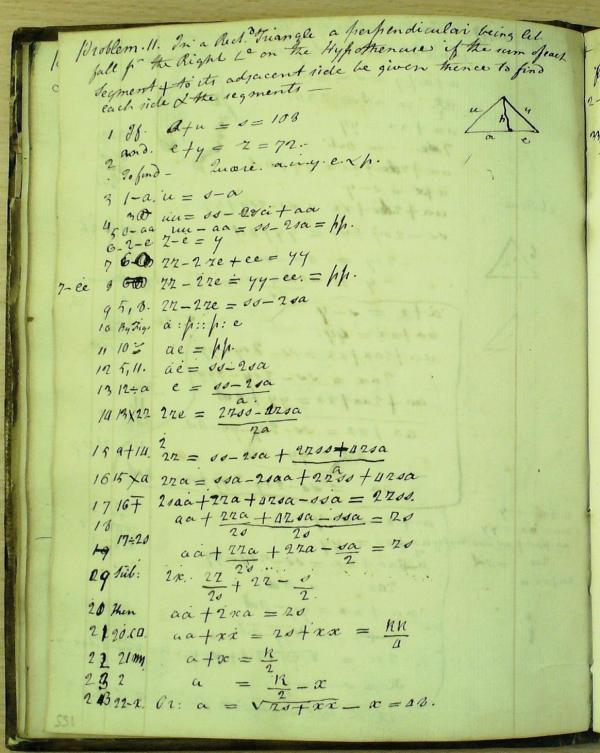 Problem. 11. In a Rect.d Triangle a perpendicular being let
fall fm the Right Le on the Hypothenuse if the sum of each
segment + to its adjacent side be given thence to find
each side & the segments —
u y
p
a e
1 If. a+u = s = 108
2 and. e+y = z = 72.
To find — Quære. a. u. y. e. & p.
3 1-a. u = s-a
4 3 uu = ss-2sa+aa
5 uu-aa = ss-2sa = pp.
6-2-e z-e = y
7 6 zz-2ze+ee = yy
7-ee 8 zz-2ze = yy-ee. = pp.
9 5, 8. zz-2ze = ss-2sa
10 By Trigo a : p :: p : e
11 10 ae = pp.
12 5, 11. ae = ss-2sa
13 12÷a e = ss-2sa
a.
14 13×2z 2ze = 2zss-4zsa
a
15 9+14. zz = ss-2sa + 2zss+4zsa
a
16 15×a zza = ssa-2saa+2zss+4zsa
17 16∓ 2saa+zza+4zsa-ssa = 2zss.
18 aa + zza+4zsa-ssa = zs
2s 2s
17÷2s aa + zza + 2za - sa = zs
2s 2
29 Sub: 2x. zz + 2z - s
2s 2.
20 then aa+2xa = zs
21 20.c▢ aa+xx = zs+xx = RR
4
22 21 a+x = R
2
23 2 a = R - x
2
22-x. Or: a = √zs+xx - x = 48.